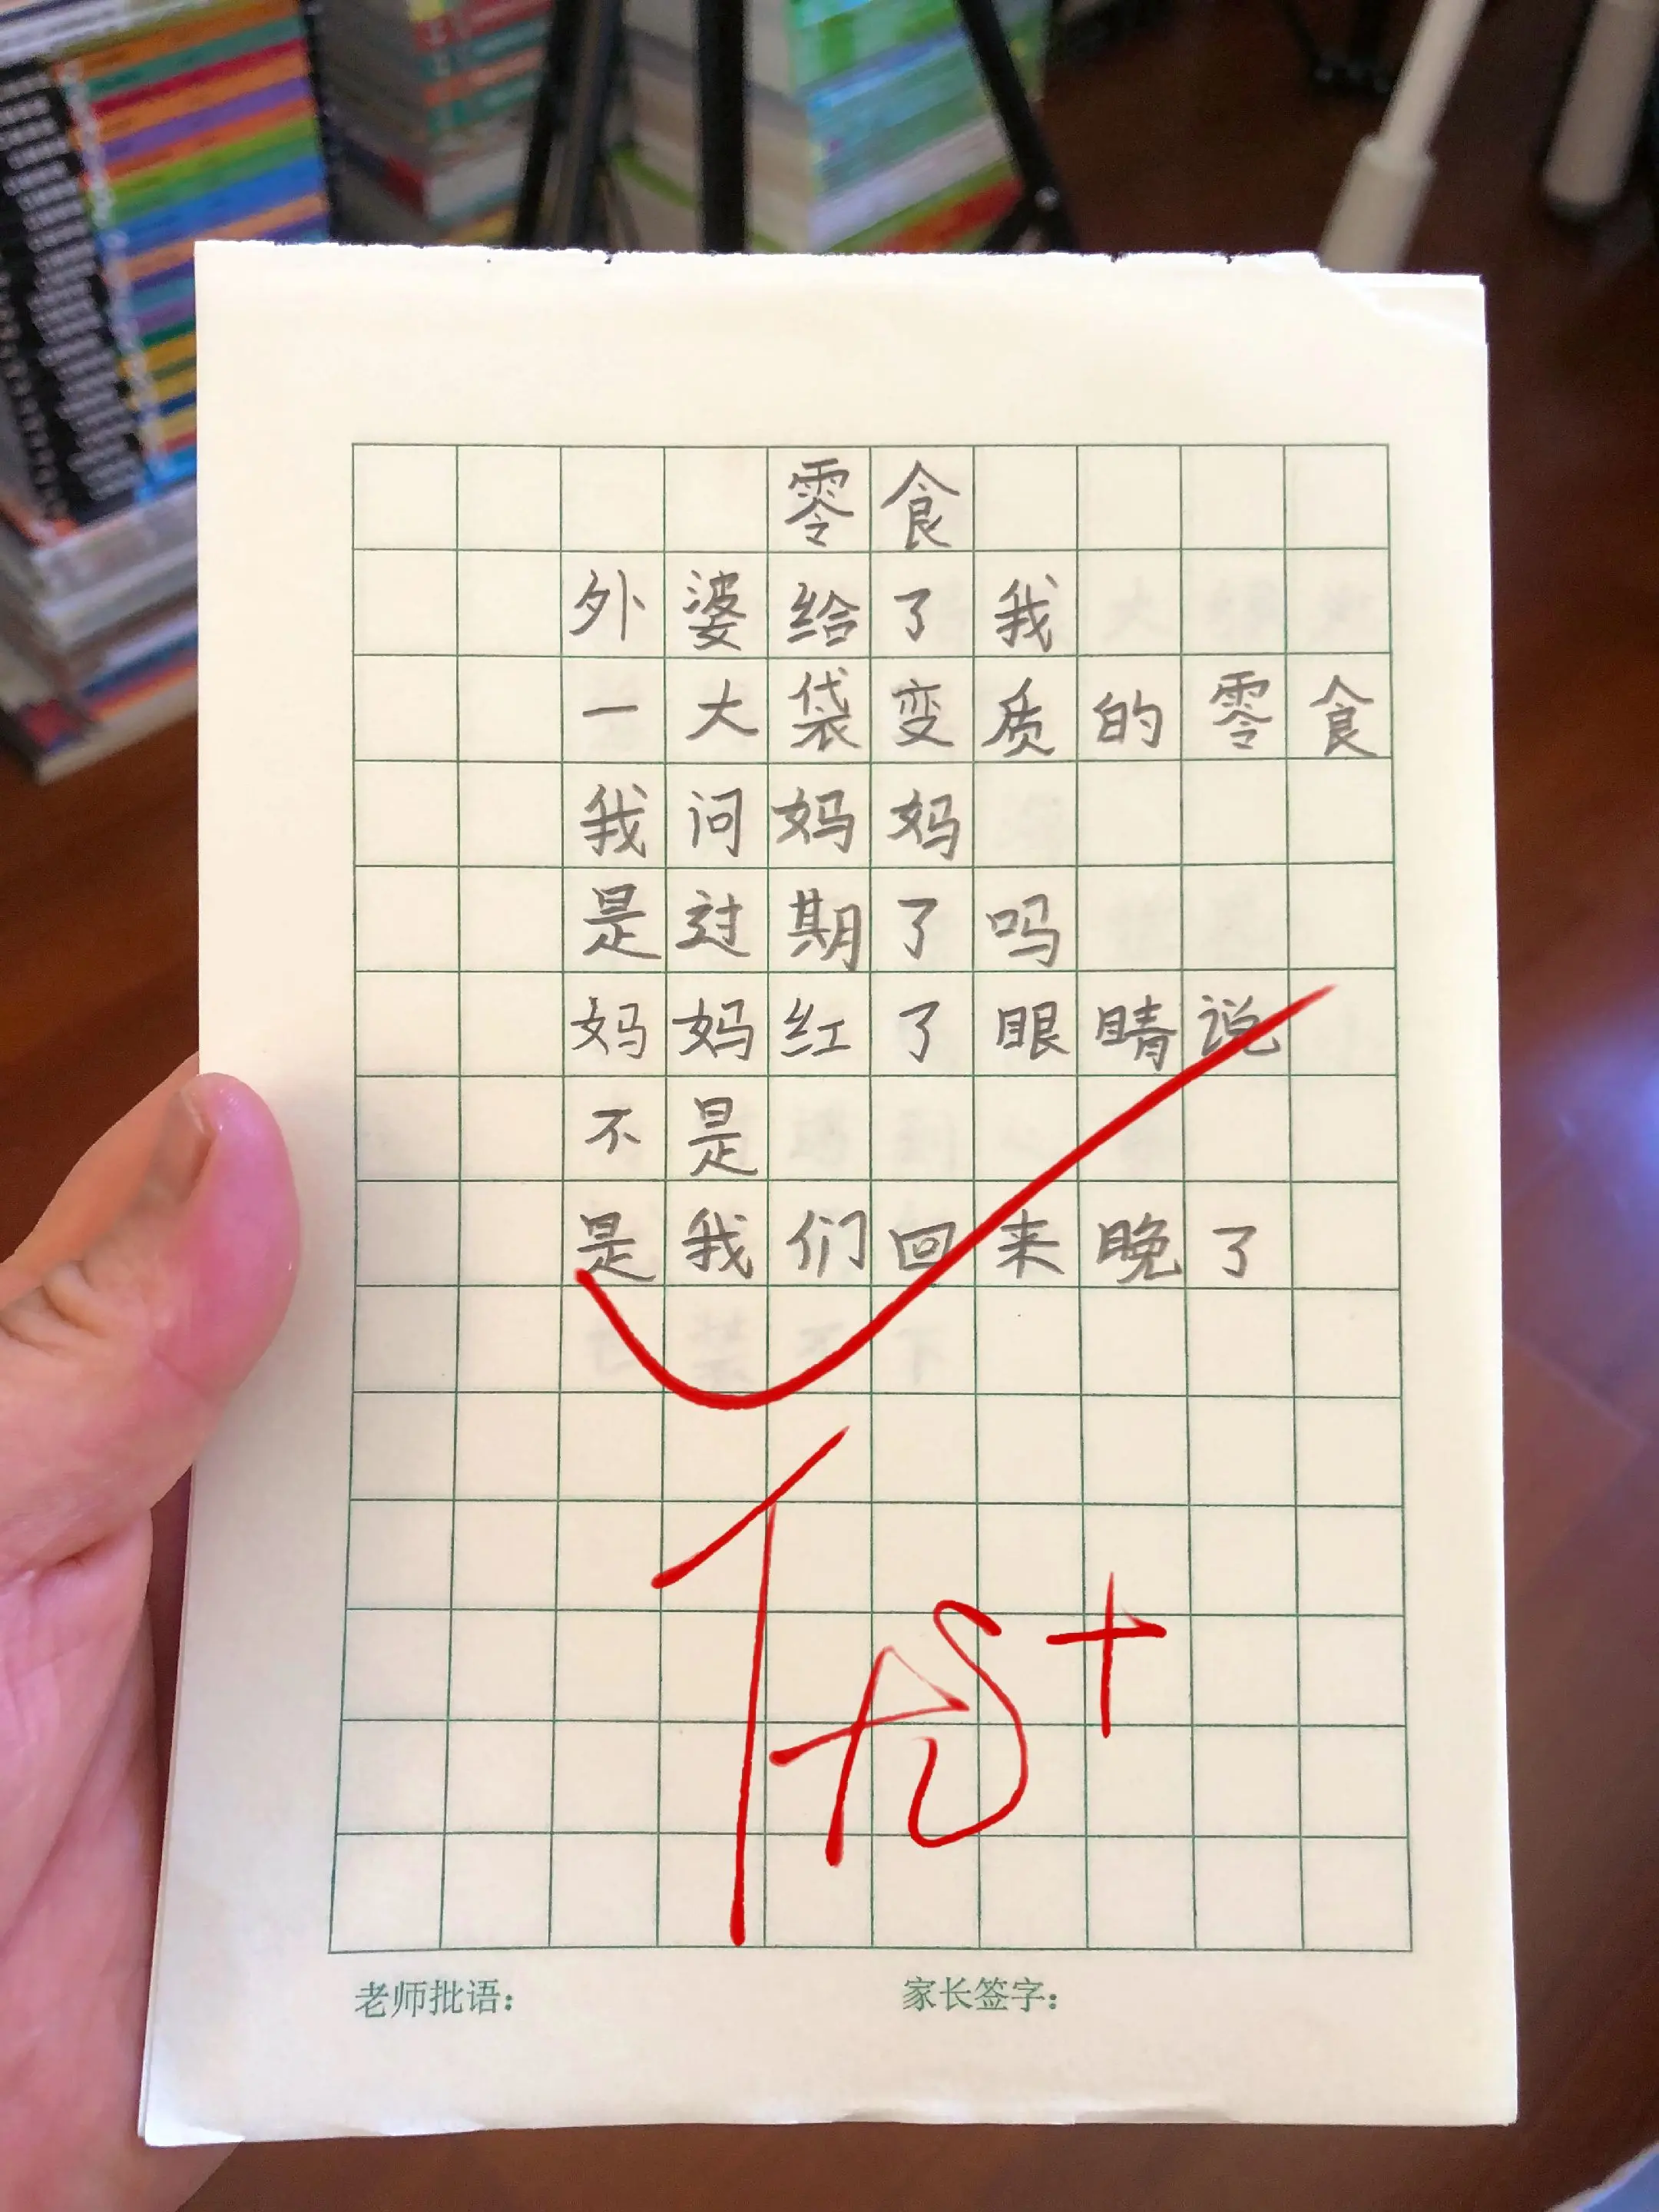 零食
外婆给了我
一大袋变质的零食
我问妈妈
是过期了吗
妈妈红了眼睛说
不是
是我们回来晚了
优+
老师批语：
家长签字：